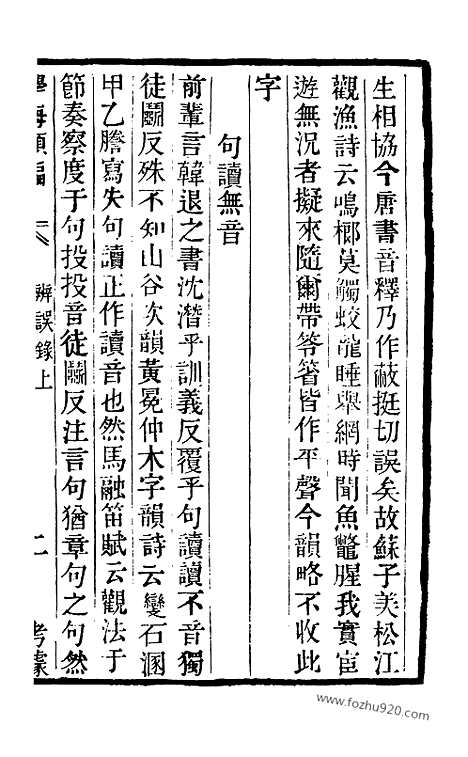 生相協今唐書音釋乃作蔽挺切誤矣故蘇子美松江
觀漁詩云鳴榔莫觸蛟龍睡舉網時聞魚鼈腥我實宦
遊無況者擬來隨爾帶笭箵皆作平聲今韻略不收此
字
句讀無音
前輩言韓退之書沈潛乎訓義反覆乎句讀讀不音獨
徒鬭反殊不知山谷次韻黃冕仲木字韻詩云變石溷
甲乙謄寫失句讀正作讀音也然馬融笛賦云觀法于
節奏察度于句投投音徒鬭反注言句猶章句之句然
學海類編
辨誤錄上
二
考據
www.fozhu920.com